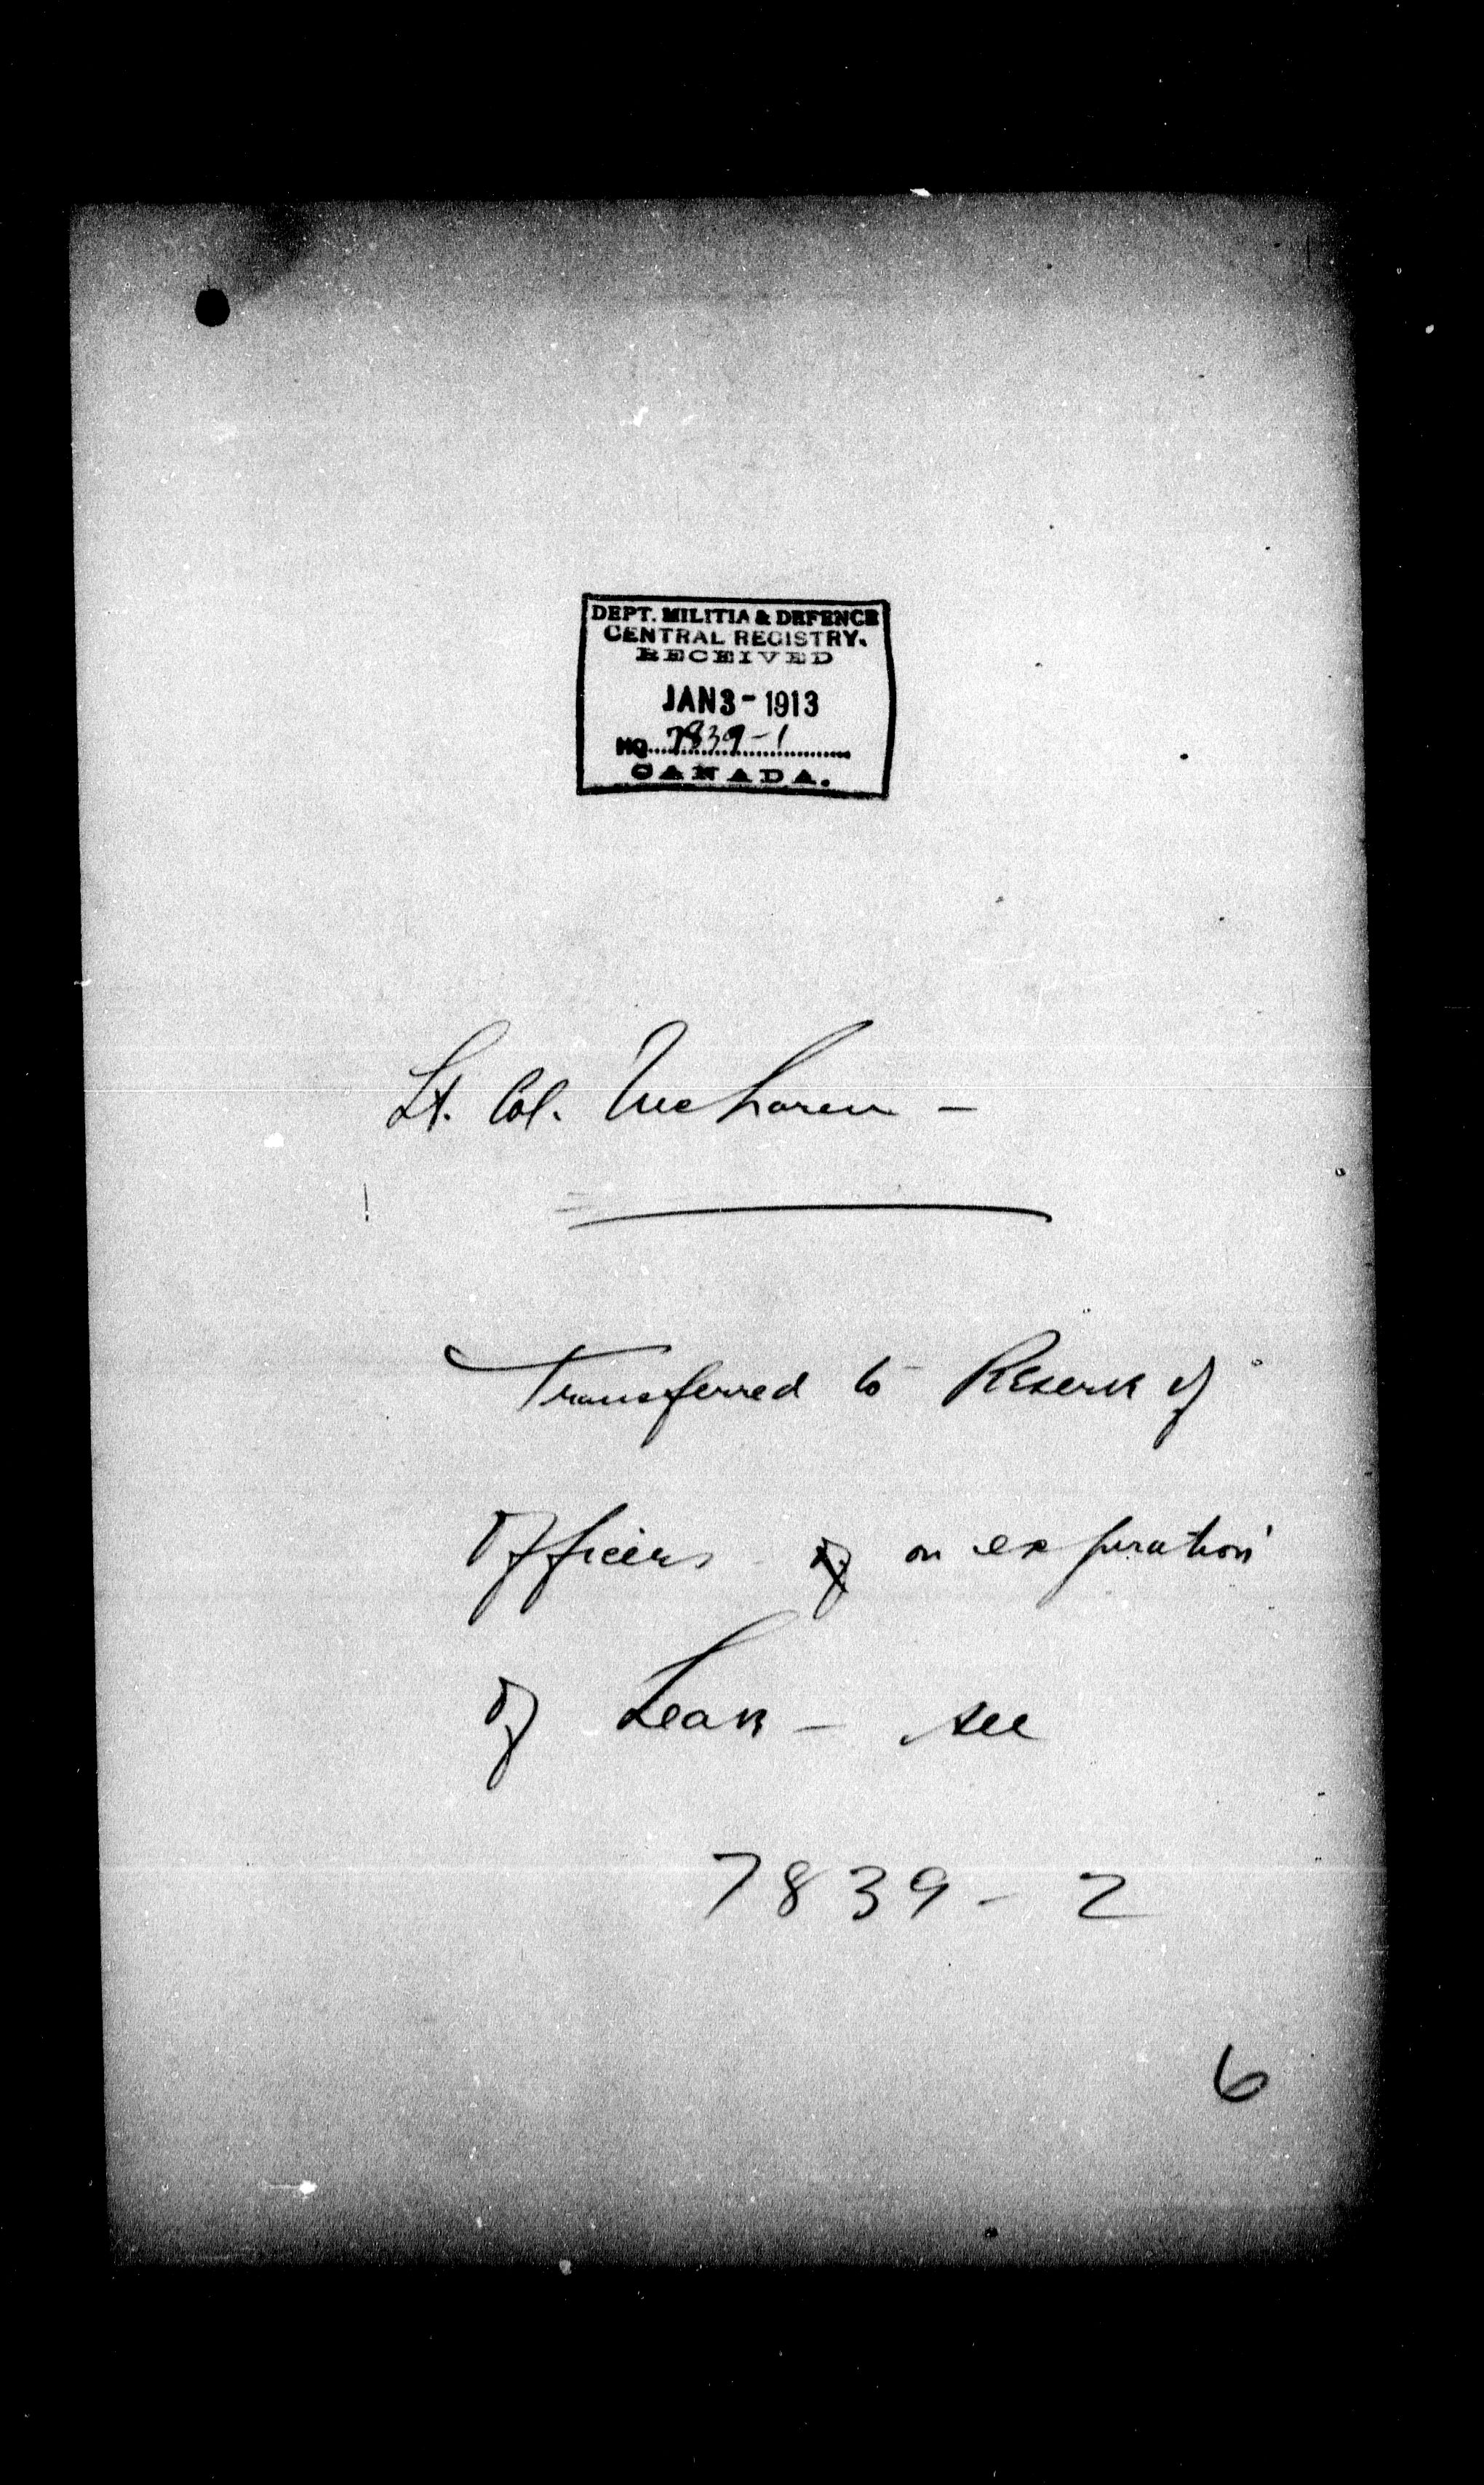 DEPT. MILITIA & DEFENCE
CENTRAL REGISTRY.
RECEIVED
JAN 3 - 1913
HQ 7839-1
CANADA.
Lt. Col. McLaren -
Transferred to Reserve of
Officers on expiration
of Leave - see
7839 - 2
6